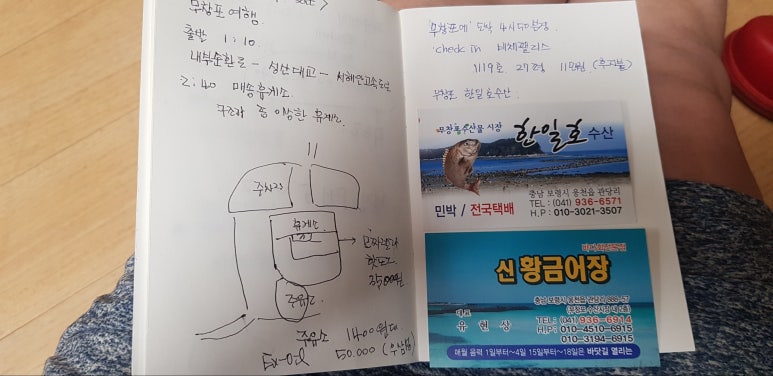 무창포 여행.
출발 1:10.
내부순환로 - 성산대교 - 서해안고속도로
2:40 매송휴게소.
구조가 좀 이상한 휴게소.
주차장
휴게소
핫도그
35,000원
주유소
주유소 1400원대
50,000
'무창포에' 도착 4시50분경.
check in 비체팰리스
1119호. 27평
무창포 한일호수산.
무창포수산물 시장
한일호 수산
충남 보령시 웅천읍 관당리
민박 / 전국택배
TEL : (041) 936-6571
H.P : 010-3021-3507
신 황금어장
충남 보령시 웅천읍 관당리
대표
유현상
TEL: (041) 936-6914
H.P: 010-4510-6915
010-3194-6915
매월 음력 1일부터~4일 15일부터~18일은 바닷길 열리는